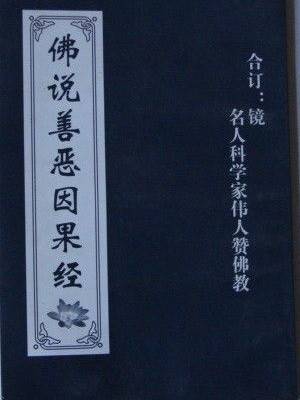 佛说善恶因果经
合订：镜
名人科学家伟人赞佛教